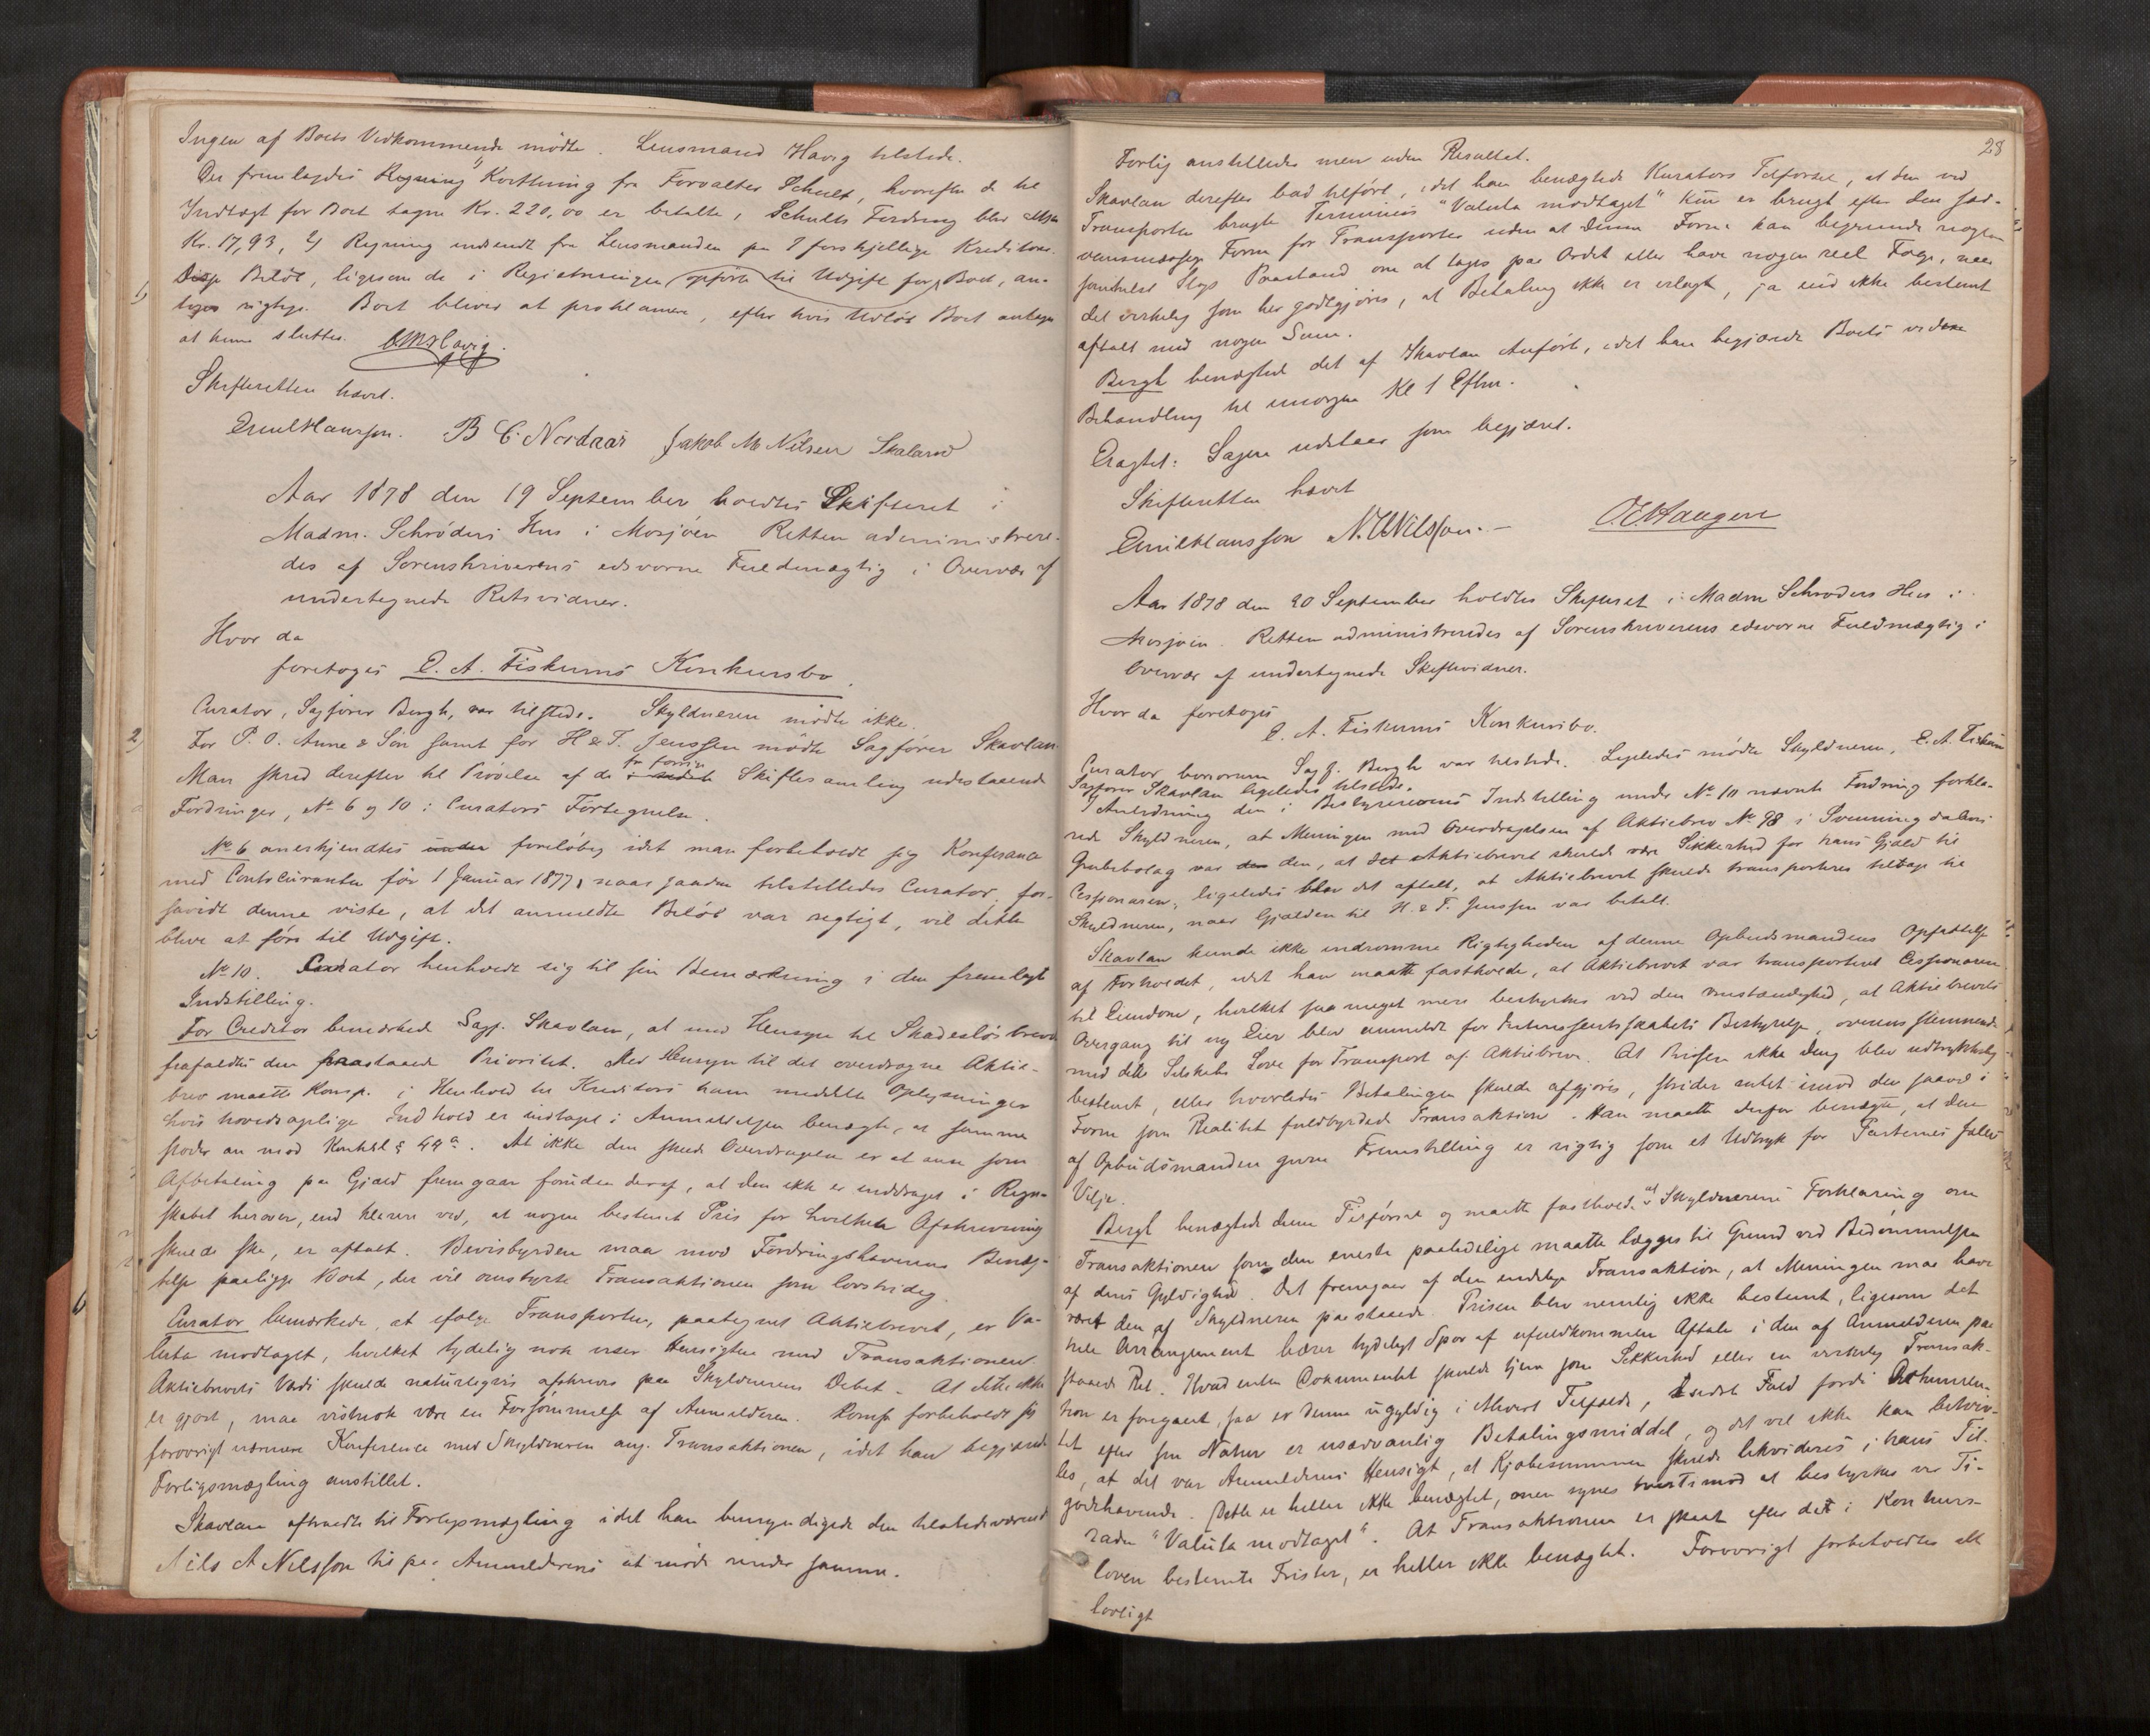 Ingen af Boets Vedkommende mödte. Lensmand Havig tilstede.
Der fremlagdes Regning Korthning fra Forvalter Schult, hvorefter de til
Indtægt for Boet tagne Kr. 220,00 er betalte, Schults Fordring blev altsaa
Kr. 17,93, 4) Regning indsendt fra Lensmanden paa 7 forskjellige Kreditorer.
Disse Belöb, ligesom de i Registreringen opförte til Udgift for Boet, an-
toges rigtige. Boet bliver at proklamere, efter hvis Udlöb Boet antages
at kunne sluttes. O.M. Havig.
Skifteretten hævet.
Emil Hansson. B C Nordaas Jakob M Nilsen Skaland
Aar 1878 den 19 September holdtes Skifteret i
Madm. Schröders Hus i Mosjöen Retten administrere-
des af Sorenskriverens edsvorne Fuldmægtig i Overvær af
undertegnede Retsvidner.
Hvor da
foretoges E. A. Fiskums Konkursbo.
2)
Curator, Sagförer Bergh, var tilstede. Skyldneren mödte ikke.
For P. O. Aune & Sön samt for H & T. Jenssen mödte Sagförer Skavlan
Man skred derefter til Prövelse af de fra forrige Skiftesamling udestaaende
Fordringer, No 6 og 10 i Curators Fortegnelse.
No 6 anerkjendtes under foreløbig idet man forbeholdt sig Konferance
med Contocuranter för 1 Januar 1877, naar saadan tilstilledes Curator, for-
savidt denne viste, at det anmeldte Belöb var rigtigt, vil dette
blive at före til Udgift.
No 10. Curator henholdt sig til sin Bemærkning i den fremlagte
Indstilling.
For Creditor bemærkede Sagf. Skavlan, at med Hensyn til Skadeslösbrevet
frafaldtes den paastaaede Prioritet. Med Hensyn til det overdragne Aktie-
brev maatte Komp. i Henhold til Kreditors ham meddelte Oplysninger
hvis hovedsagelige Indhold er indtaget i Anmeldelsen benægte, at samme
stöder an mod Konkl. § 44a. At ikke den skede Overdragelse er at anse som
Afbetaling paa Gjæld fremgaar foruden deraf, at den ikke er inddraget i Regn-
skabet herover, end videre ved, at nogen bestemt Pris for hvilken Afskrivning
skulde ske, er aftalt. Bevisbyrden maa mod Fordringshaverens Benæg-
telse paaligge Boet, der vil omstyrte Transaktionen som lovstridig.
Curator bemærkede, at ifölge Transporten, paategnet Aktiebrevet, er Va-
luta modtaget, hvilket tydelig nok viser Hensigten med Transaktionen
Aktiebrevets Værdi skulde naturligvis afskrives paa Skyldnerens Debet. At dette ikke
er gjort, maa vistnok være en Forsömmelse af Anmelderen. Komp. forbeholdt sig
forövrigt nærmere Konference med Skyldneren ang. Transaktionen, idet han begjærede
Forligsmægling anstillet.
Skavlan aftraadte til Forligsmægling idet han bemyndigede den tilstedeværende
Nils A Nilsson til paa Anmelderens at møde under samme.
28
Forlig anstilledes men uden Resultat.
Skavlan derefter bad tilfört, idet han benægtede Kurators Tilförsel, at den ved
Transporten brugte Terminus "Valuta modtaget" kun er brugt efter den sæd-
vansmæssige Form for Transporter uden at denne Form kan begrunde nogen
somhelst Slags Paastand om at tages paa Ordet eller have nogen reel Følge, naar
det virkelig som her godtgjöres, at Betaling ikke er erlagt, ja end ikke bestemt
aftalt med nogen Sum.
Bergh benægtede det af Skavlan Anförte, idet han begjærede Boets videre
Behandling til imorgen Kl 1 Efterm.
Eragtet: Sagen udstaar som begjæret.
Skifteretten hævet
Emil Hansson N. A Nilsson. — O. E Haugen
Aar 1878 den 20 September holdtes Skifteret i Madm Schröders Hus i
Mosjöen. Retten administreredes af Sorenskriverens edsvorne Fuldmægtig i
Overvær af undertegnede Skiftevidner.
Hvor da foretoges
E. A. Fiskums Konkursbo.
Curator bonorum Sagf. Bergh var tilstede. Ligeledes mödte Skyldneren, E. A. Fiskum
Sagförer Skavlan ligeledes tilstede.
I Anledning den i Bestyrerens Indstilling under No 10 nævnte Fordring forkla-
rede Skyldneren, at Meningen med Overdragelsen af Aktiebrev No 98 i Svenningdalens
Grubebolag var den, at det Aktiebrevet skulde være Sikkerhed for hans Gjæld til
Cessionaren, ligeledes blev det aftalt, at Aktiebrevet skulde transporteres tilbage til
Skyldneren, naar Gjælden til H. & T. Jenssen var betalt.
Skavlan kunde ikke indrømme Rigtigheden af denne Opbudsmandens Opfattelse
af Forholdet, idet han maatte fastholde, at Aktiebrevet var transporteret Cessionaren
til Eiendom, hvilket saa meget mere bestyrkes ved den Omstændighed, at Aktiebrevets
Overgang til ny Eier blev anmeldt for Interessentskabets Bestyrelse, overensstemmende
med dette Selskabs Love for Transport af Aktiebreve. At Prisen ikke den blev udtrykkelig
bestemt, eller hvorledes Betalingen skulde afgjöres, strider intet imod den saavel i
Form som Realitet fuldbyrdede Transaktion. Han maatte derfor benægte, at den
af Opbudsmanden givne Fremstilling er rigtig som et Udtryk for Parternes fælles
Vilje.
Bergh benægtede denne Tilförsel og maatte fastholde at Skyldnerens Forklaring om
Transaktionen som den eneste paalidelige maatte lægges til Grund ved Bedömmelsen
af dens Gyldighed. Det fremgaar af den endelige Transaktion, at Meningen maa have
været den af Skyldneren paastaaede. Prisen blev nemlig ikke bestemt, ligesom det
hele Arrangement bærer tydeligt Spor af ufuldkommen Aftale i den af Anmelderen paa
staaede Ret. Hvad enten Dokumentet skulde tjene som Sikkerhed eller en virkelig Transak-
tion er foregaaet, saa er denne ugyldig i ethvert Tilfælde, i sidste Fald fordi Dokumen-
tet efter sin Natur er usædvanlig Betalingsmiddel, og det vel ikke kan betviv-
les, at det var Anmelderens Hensigt, at Kjøbesummen skulde likvideres i hans Til-
godehavende. Dette er heller ikke benægtet, men synes tvertimod at bestyrkes ved Ti-
raden "Valuta modtaget". At Transaktionen er skeet efter det i Konkurs-
loven bestemte Frister, er heller ikke benægtet. Forövrigt forbeholdtes alt
lovligt